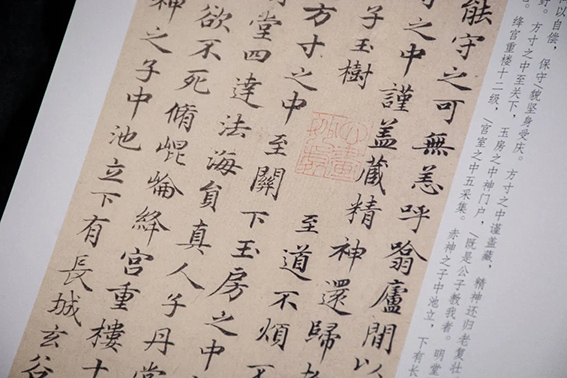 以自偿，保守/貌坚身受庆。方寸之中谨盖藏，精神还归老复壮
方寸之中至关下，玉房之中神门户，/既是公子教我者。明堂
绛宫重楼十二级，/宫室之中五采集。赤神之子中池立，下有长
能守之可無恙呼噏廬間以
之中謹盖藏精神還歸
子玉樹 至道不煩不
方寸之中至關下玉房之中
堂四達法海員真人子丹
欲不死脩崐崘絳宮重樓十
神之子中池立下有長城玄谷